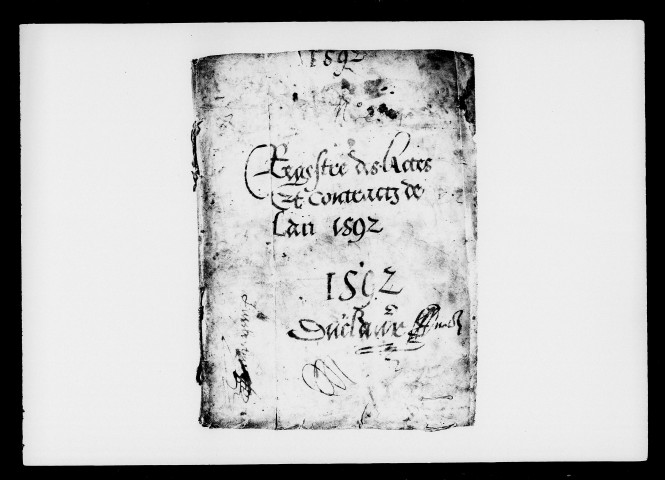 1592
Regestre des Actes
Et Contractz de
Lan 1592
1592
Duclaux